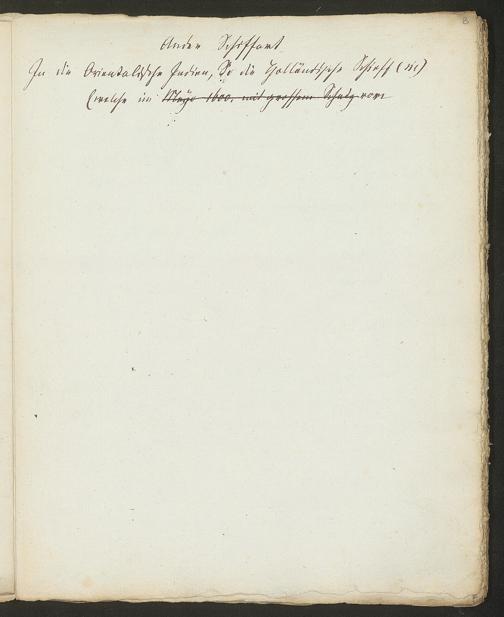 8
Ander Schiffart
In die Orientalische Indien, So die Holländische Schieff (sic)
(welche im Mayo 1600. mit grossem Schatz vom